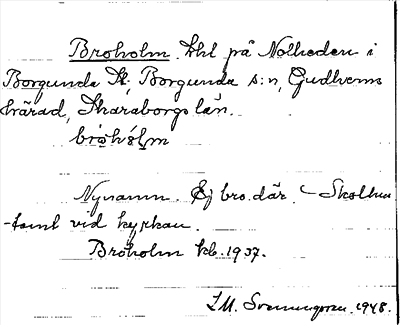 Broholm. lht på Nolheden i
Borgunda St, Borgunda s:n, Gudhems
härad, Skaraborgs län.
bròhól̥m
Nynamn. Ej bro där. Skolhus
-tomt vid kyrkan.
Broholm kb. 1937.
1948.